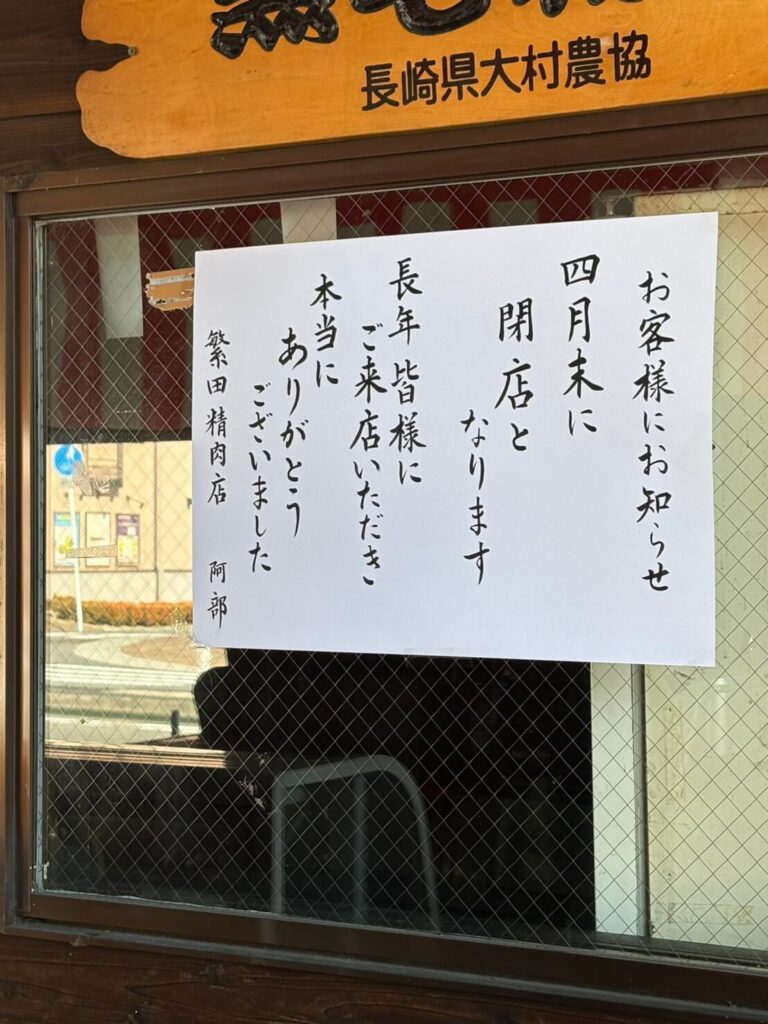 長崎県大村農協
お客様にお知らせ
四月末に
閉店と
なります
長年皆様に
ご来店いただき
本当に
ありがとう
ございました
繁田精肉店 阿部